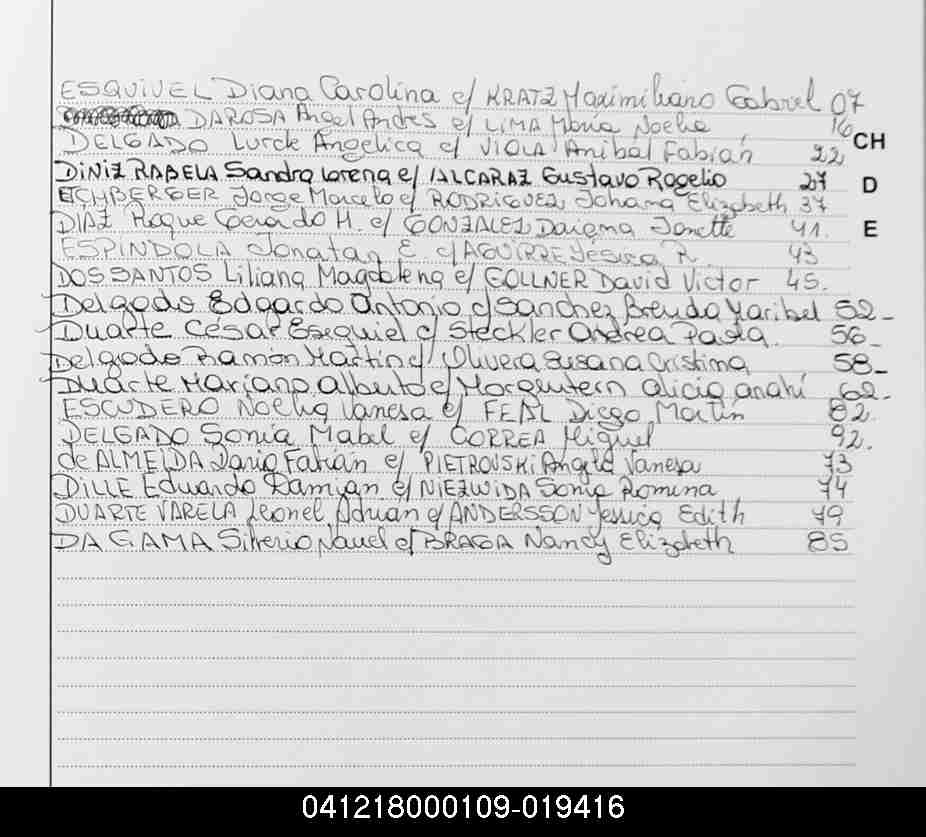 ESQUIVEL Diana Carolina c/ KRATZ Maximiliano Gabriel 07
DAROSA Angel Andres c/ LIMA María Noelia 16
DELGADO Angelica c/ VIOLA Anibal Fabián 22 CH
DINIZ RABELA Sandra Lorena c/ ALCARAZ Gustavo Rogelio 27 D
ETCHBERGER Jorge Marcelo c/ RODRIGUEZ Johana Elizabeth 37
DIAZ Roque Gerardo H. c/ GONZALEZ Daiana Janette 41. E
ESPINDOLA Jonatan E. c/ AGUIRRE Jésica R. 43
DOS SANTOS Liliana Magdalena c/ GOLLNER David Victor 45.
Delgado Edgardo Antonio c/ Sanchez Brenda Maribel 52_
Duarte César Esequiel c/ Steckler Andrea Paola. 56_
Delgado Ramón Martin c/ Olivera Susana Cristina 58_
Duarte Mariano Alberto c/ Morgenstern Alicia Anahí 62.
ESCUDERO Noelia Vanesa c/ Diego Martín 82.
DELGADO Sonia Mabel c/ CORREA Miguel 92.
de ALMEIDA Dario Fabián c/ PIETROUSKI Angela Vanesa 73
DILLE Eduardo Damian c/ NIEZWIDA Sonia Romina 74
DUARTE VARELA Leonel Adrian c/ ANDERSSON Yessica Edith 79
DA GAMA Silverio Nauel c/ BRAGA Nancy Elizabeth 85
041218000109-019416